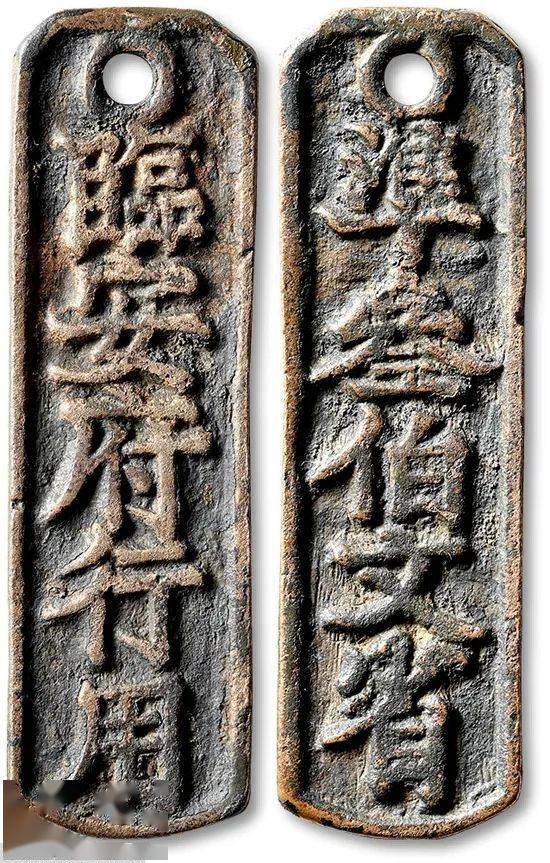 臨安府行用
準叁伯文省